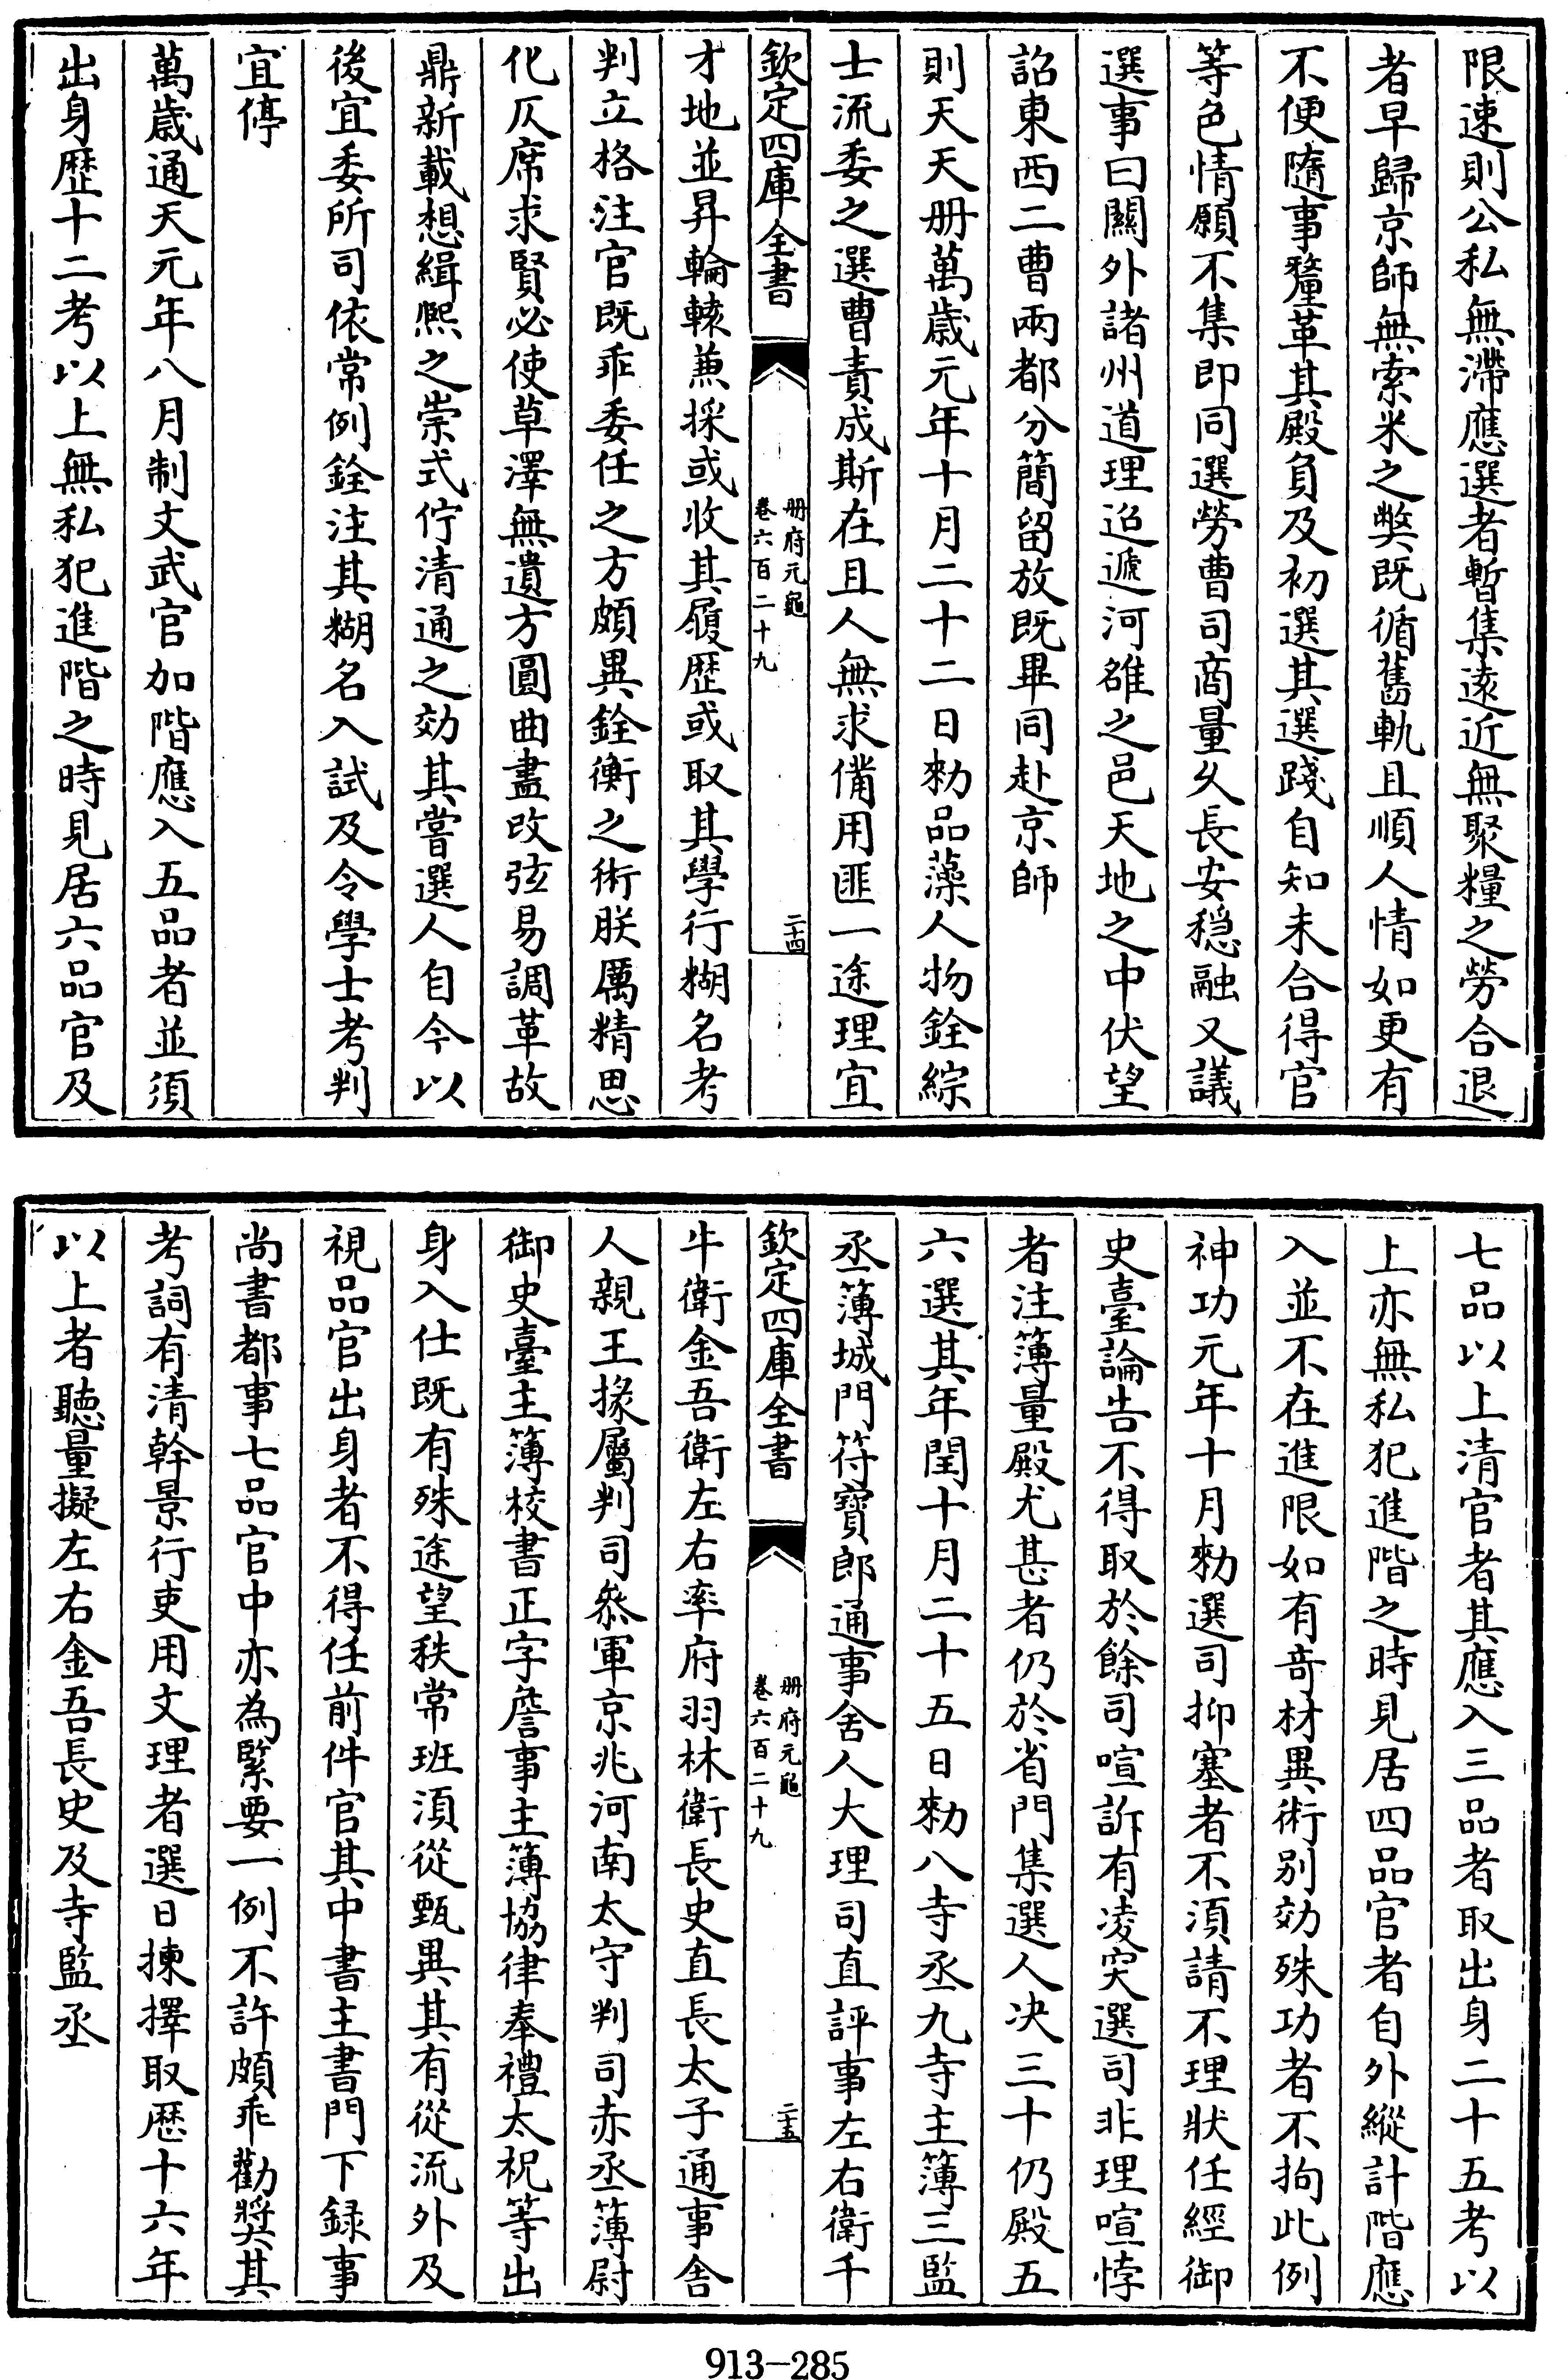 限速則公私無滯應選者暫集遠近無聚糧之勞合退
者早歸京師無索米之弊既循舊軌且順人情如更有
不便隨事釐革其殿負及初選其選踐自知未合得官
等色情願不集即同選勞曹司商量久長安穩融又議
選事曰關外諸州道理迢遞河雒之邑天地之中伏望
詔東西二曹兩都分簡留放既畢同赴京師
則天天册萬歲元年十月二十二日勑品藻人物銓綜
士流委之選曹責成斯在且人無求備用匪一途理宜
欽定四庫全書
册府元龜
卷六百二十九
二十四
才地並昇輪轅兼採或收其履歷或取其學行糊名考
判立格注官既乖委任之方頗異銓衡之術朕厲精思
化仄席求賢必使草澤無遺方圓曲盡改弦易調革故
鼎新載想緝熙之崇式佇清通之効其嘗選人自今以
後宜委所司依常例銓注其糊名入試及令學士考判
宜停
萬歲通天元年八月制文武官加階應入五品者並須
出身歷十二考以上無私犯進階之時見居六品官及
七品以上清官者其應入三品者取出身二十五考以
上亦無私犯進階之時見居四品官者自外縱計階應
入並不在進限如有竒材異術别効殊功者不拘此例
神功元年十月勑選司抑塞者不須請不理狀任經御
史臺論告不得取於餘司喧訴有凌突選司非理喧悖
者注簿量殿尤甚者仍於省門集選人决三十仍殿五
六選其年閏十月二十五日勑八寺丞九寺主簿三監
丞簿城門符寶郎通事舍人大理司直評事左右衛千
欽定四庫全書
册府元龜
卷六百二十九
二十五
牛衛金吾衛左右率府羽林衛長史直長太子通事舍
人親王掾屬判司叅軍京兆河南太守判司赤丞簿尉
御史臺主簿校書正字詹事主簿協律奉禮太祝等出
身入仕既有殊途望秩常班須從甄異其有從流外及
視品官出身者不得任前件官其中書主書門下録事
尚書都事七品官中亦為緊要一例不許頗乖勸奬其
考詞有清幹景行吏用文理者選日揀擇取歷十六年
以上者聽量擬左右金吾長史及寺監丞
913-285